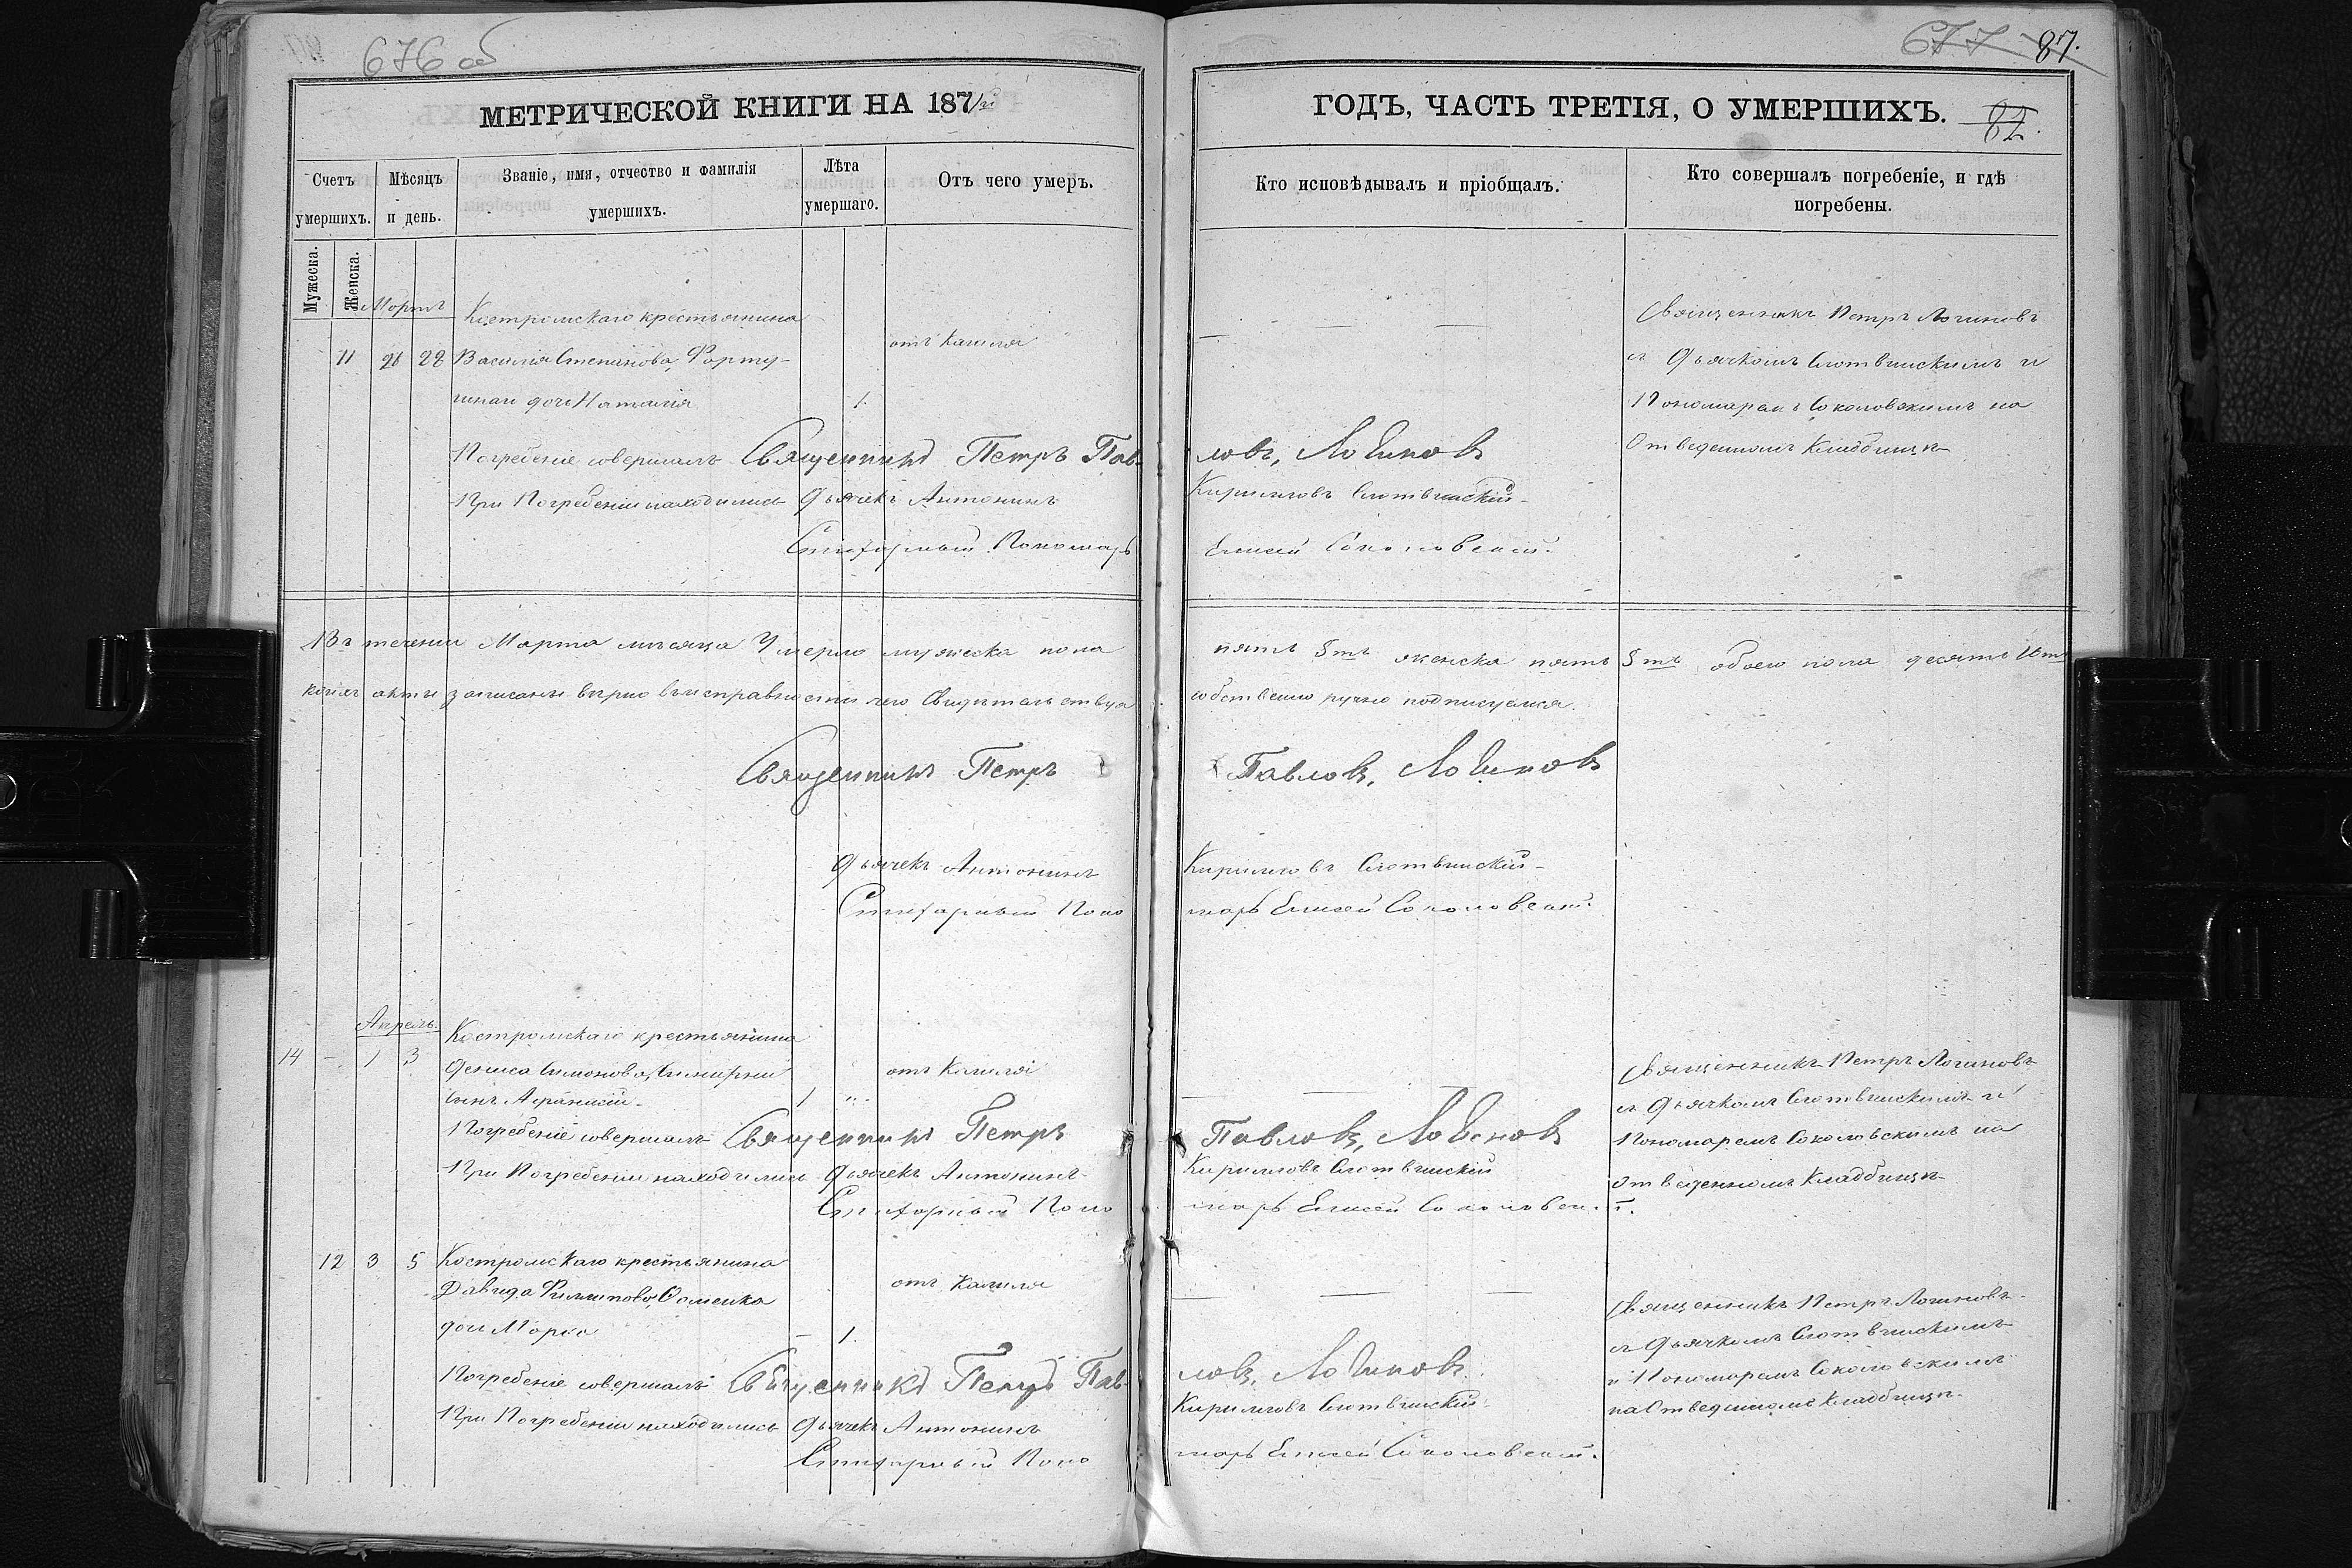 676 об
МЕТРИЧЕСКОЙ КНИГИ НА 187
Счетъ умершихъ.
Мѣсяцъ и день.
Званіе, имя, отчество и фамилія умершихъ.
Лѣта умершаго.
Отъ чего умеръ.
Мужеска.
Женска.
Мартъ
Костромскаго крестьянина
11 26 28 Василія Степанова, Форту-
дочь Наталія 1.
отъ Кашля
Погребеніе совершалъ Священникъ Петръ Пав-
При Погребеніи находились Дьячекъ Антонинъ
Пономарь
Въ теченіи Марта мѣсяца Умерло мужеска пола
коихъ акты записаны вѣрно въ исправности чего Свидѣтельствуя
Священникъ Петръ
Дьячекъ Антонинъ
Поно
Апрѣль
Костромскаго крестьянина
14 - 1 3 Дениса Симонова,
сынъ Афанасій 1 "
отъ Кашля
Погребеніе совершалъ Священникъ Петръ
При Погребеніи находились Дьячекъ Антонинъ
Поно
12 3 5 Костромскаго крестьянина
Давида Филиппова,
дочь
- 1.
отъ Кашля
Погребеніе совершалъ Священникъ Петръ Пав-
При Погребеніи находились Дьячекъ Антонинъ
Поно
677 87.
ГОДЪ, ЧАСТЬ ТРЕТІЯ, О УМЕРШИХЪ.
82.
Кто исповѣдывалъ и пріобщалъ.
Кто совершалъ погребеніе, и гдѣ погребены.
Священникъ Петръ Логиновъ
съ Дьячкомъ Слотвинскимъ и
Пономаремъ Соколовскимъ на
Отведенномъ Кладбищѣ
ловъ, Логиновъ
Кириловъ Слотвинскій
Елисей Соколовскій.
пять 5ть женска пять 5ть обоего пола десять 10ть
собственно ручно подписуемся.
Павловъ, Логиновъ
Кириловъ Слотвинскій
марь Елисей Соколовскій.
Священникъ Петръ Логиновъ
съ Дьячкомъ Слотвинскимъ и
Пономаремъ Соколовскимъ на
Отведенномъ Кладбищѣ
Павловъ, Логиновъ
Кириловъ Слотвинскій
марь Елисей
Священникъ Петръ Логиновъ
съ Дьячкомъ Слотвинскимъ
и Пономаремъ Соколовскимъ
на Отведенномъ Кладбищѣ
ловъ, Логиновъ
Кириловъ Слотвинскій
марь Елисей Соколовскій.